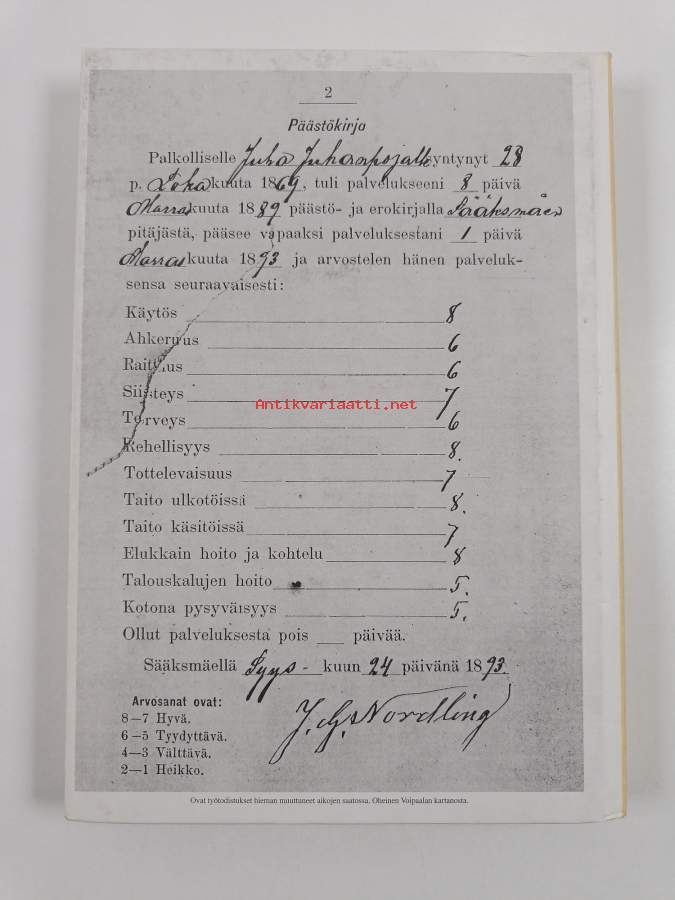 2
Päästökirja
Palkolliselle Juha Juhanpojalle syntynyt 28
p. Loka kuuta 1869, tuli palvelukseeni 8 päivä
Marras kuuta 1889 päästö- ja erokirjalla Sääksmäen
pitäjästä, pääsee vapaaksi palveluksestani 1 päivä
Marras kuuta 1893 ja arvostelen hänen palveluk-
sensa seuraavaisesti:
Käytös 8
Ahkeruus 6
Raittius 6
Siisteys 7
Antikvariaatti.net
Terveys 6
Rehellisyys 8.
Tottelevaisuus 7
Taito ulkotöissä 8.
Taito käsitöissä 7
Elukkain hoito ja kohtelu 8
Talouskalujen hoito 5.
Kotona pysyväisyys 5.
Ollut palveluksesta pois päivää.
Sääksmäellä Syys- kuun 24 päivänä 1893.
Arvosanat ovat:
8—7 Hyvä.
6—5 Tyydyttävä.
4—3 Välttävä.
2—1 Heikko.
J. G. Nordling
Ovat työtodistukset hieman muuttuneet aikojen saatossa. Oheinen Voipaalan kartanosta.